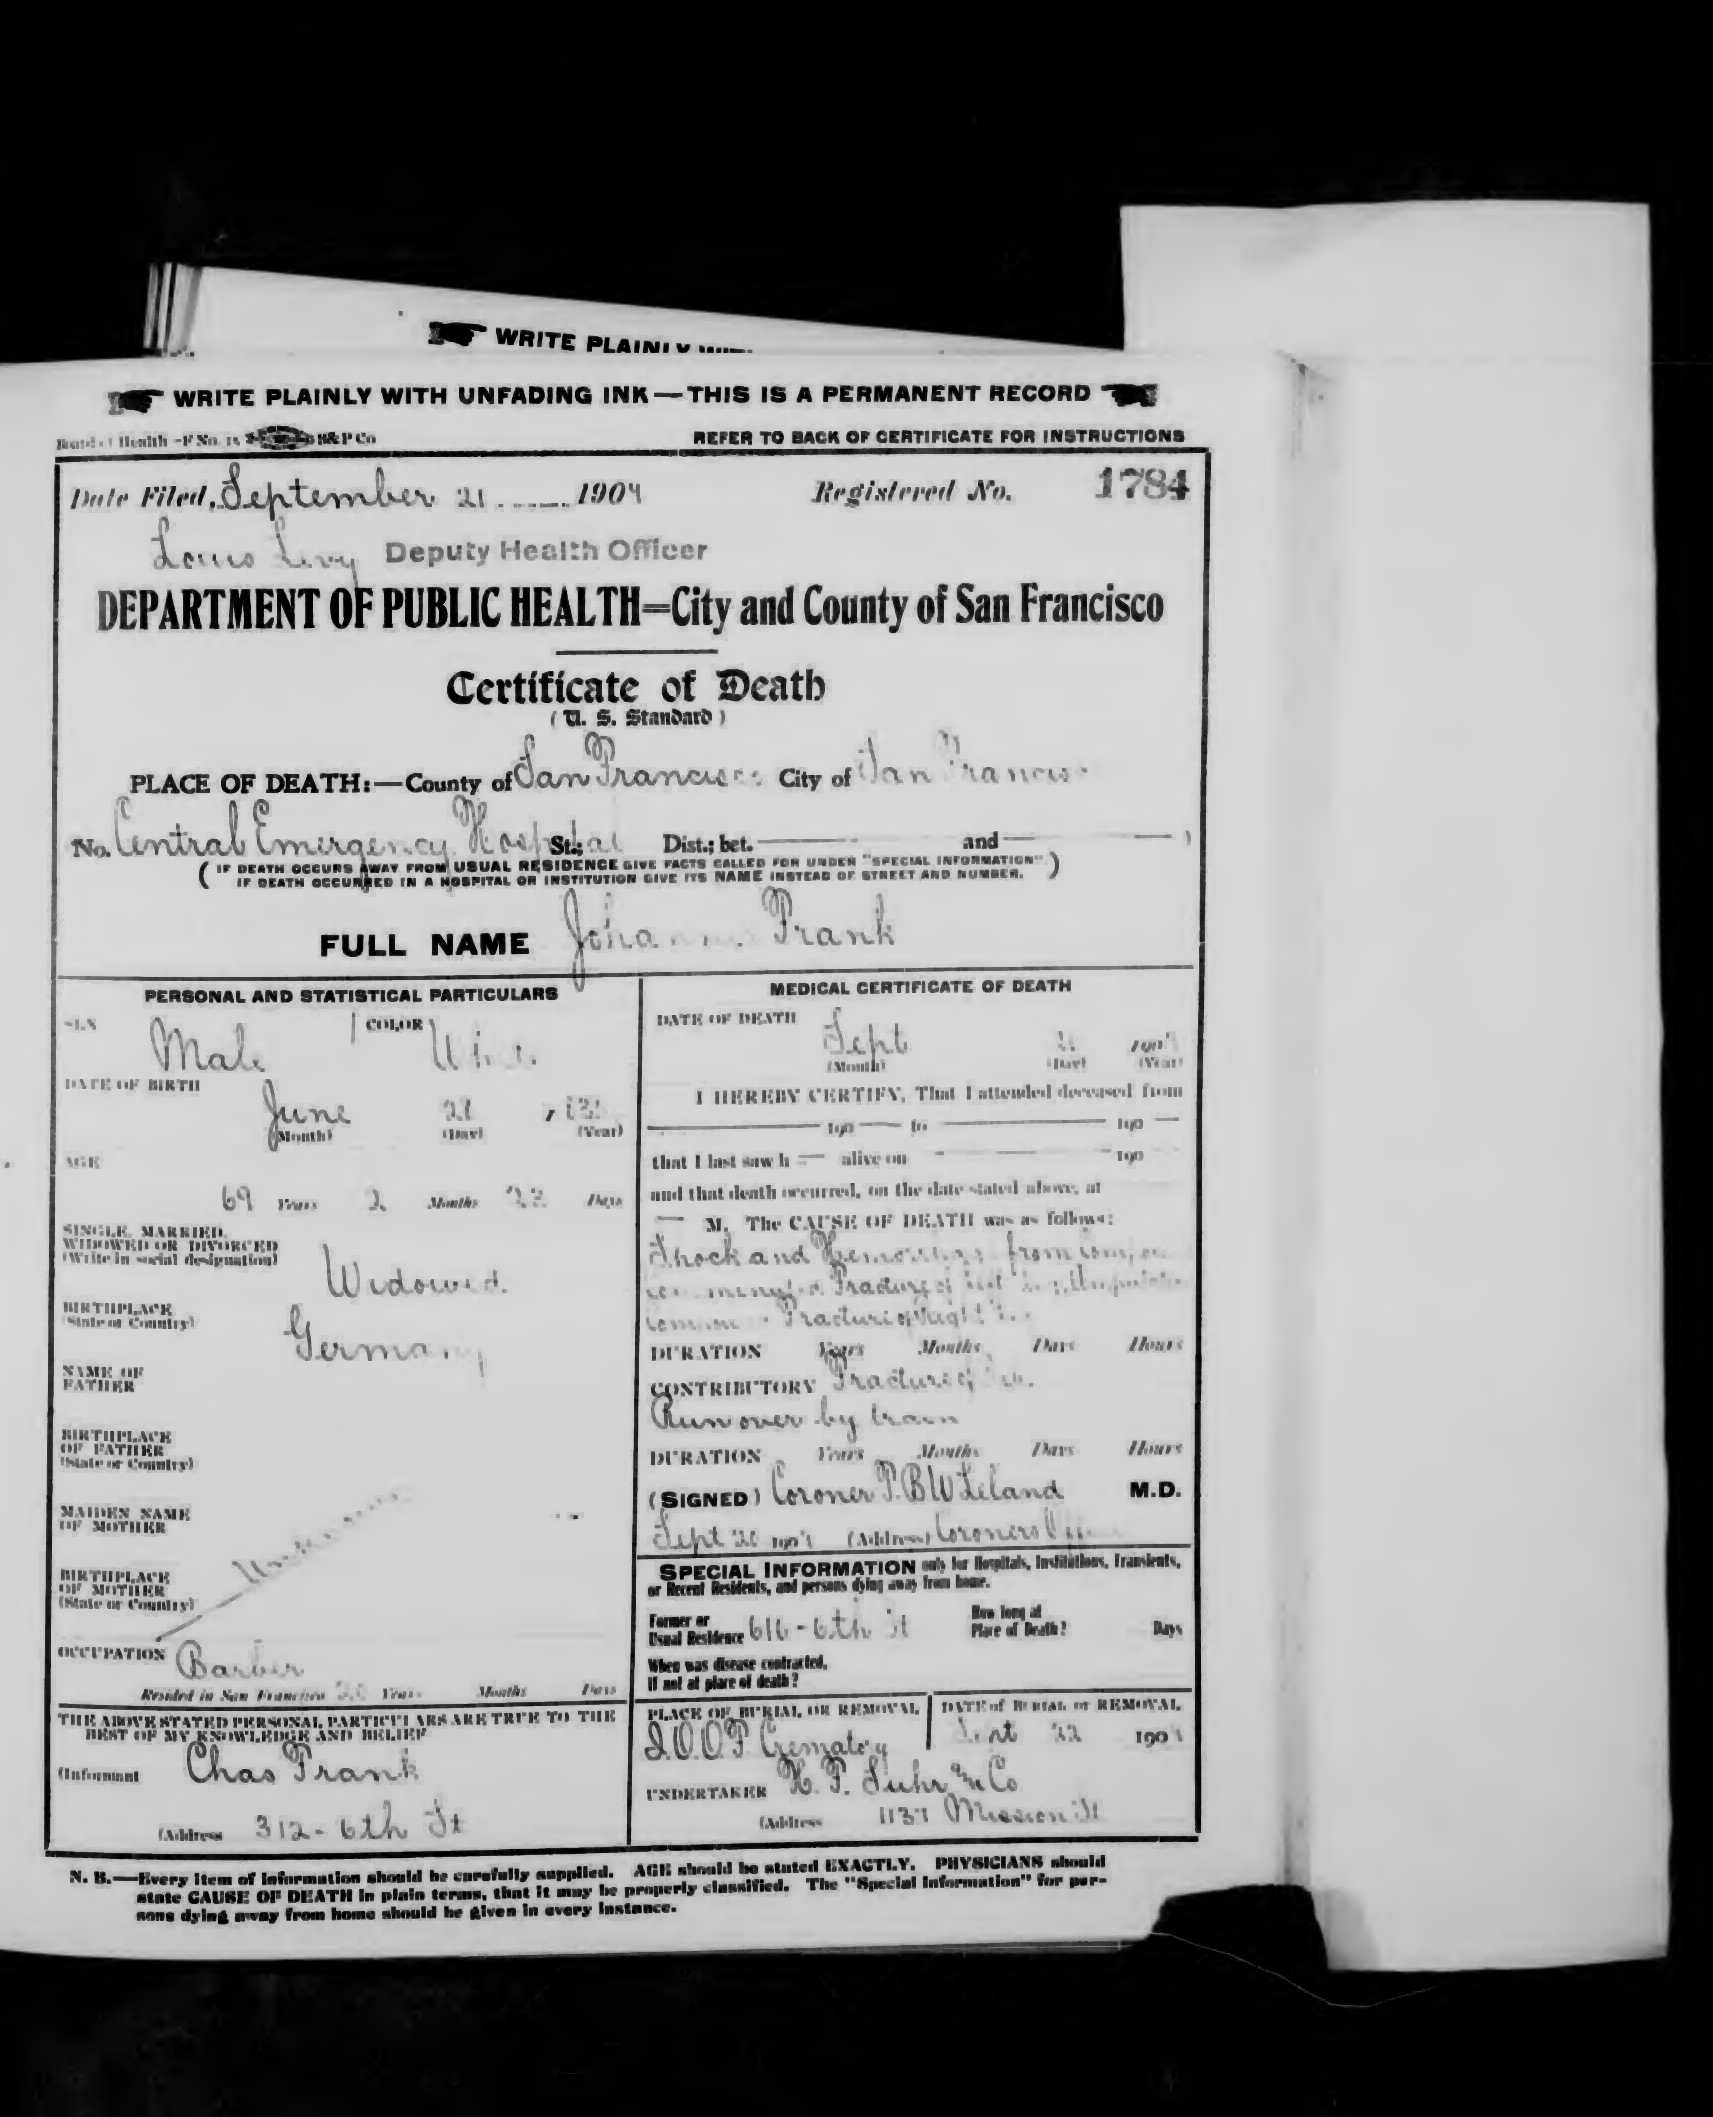 WRITE PLAINLY
WRITE PLAINLY WITH UNFADING INK—THIS IS A PERMANENT RECORD
Board of Health—F No. B&P Co
REFER TO BACK OF CERTIFICATE FOR INSTRUCTIONS
Date Filed, September 21 1904 Registered No. 1784
Louis Levy Deputy Health Officer
DEPARTMENT OF PUBLIC HEALTH=City and County of San Francisco
Certificate of Death
(U. S. Standard)
PLACE OF DEATH:—County of San Francisco City of San Francisco
No. Central Emergency Hospital St.; Dist.; bet. and )
( IF DEATH OCCURS AWAY FROM USUAL RESIDENCE GIVE FACTS CALLED FOR UNDER "SPECIAL INFORMATION" )
IF DEATH OCCURRED IN A HOSPITAL OR INSTITUTION GIVE ITS NAME INSTEAD OF STREET AND NUMBER.
FULL NAME Frank
PERSONAL AND STATISTICAL PARTICULARS
SEX Male COLOR
DATE OF BIRTH
June
(Month) (Day) (Year)
AGE
69 Years 2 Months Days
SINGLE, MARRIED,
WIDOWED OR DIVORCED
(Write in social designation)
Widowed
BIRTHPLACE
(State or Country)
Germany
NAME OF
FATHER
BIRTHPLACE
OF FATHER
(State or Country)
MAIDEN NAME
OF MOTHER
BIRTHPLACE
OF MOTHER
(State or Country)
OCCUPATION Barber
Resided in San Francisco Years Months Days
THE ABOVE STATED PERSONAL PARTICULARS ARE TRUE TO THE
BEST OF MY KNOWLEDGE AND BELIEF
(Informant Chas Frank
(Address 312 - 6th St
MEDICAL CERTIFICATE OF DEATH
DATE OF DEATH
Sept 190
(Month) (Day) (Year)
I HEREBY CERTIFY, That I attended deceased from
190 to 190
that I last saw h alive on 190
and that death occurred, on the date stated above, at
M. The CAUSE OF DEATH was as follows:
Shock and from
Fracture of
Fracture of right
DURATION Years Months Days Hours
CONTRIBUTORY Fracture of
Run over by train
DURATION Years Months Days Hours
(SIGNED) Coroner T. B W Leland M.D.
Sept 190 (Address) Coroners Office
SPECIAL INFORMATION only for Hospitals, Institutions, Transients,
or Recent Residents, and persons dying away from home.
Former or
Usual Residence 616 - 6th St
How long at
Place of Death? Days
When was disease contracted,
If not at place of death?
PLACE OF BURIAL OR REMOVAL
I.O.O.F Crematory
DATE of BURIAL or REMOVAL
Sept 22 190
UNDERTAKER H. F. Suhr & Co
(Address 1137 Mission St
N. B.—Every item of information should be carefully supplied. AGE should be stated EXACTLY. PHYSICIANS should
state CAUSE OF DEATH in plain terms, that it may be properly classified. The "Special Information" for per-
sons dying away from home should be given in every instance.